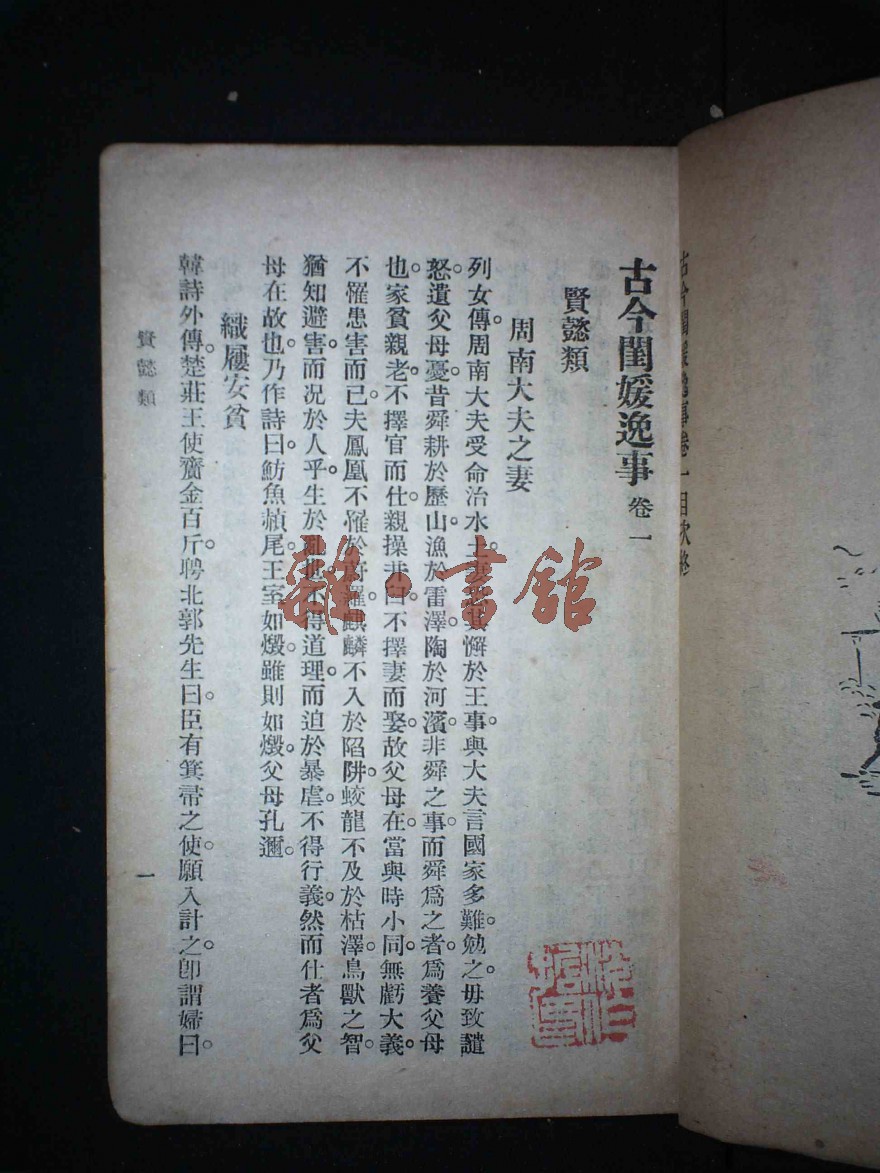 古今閨媛逸事卷一目次終
古今閨媛逸事 卷一
賢懿類
周南大夫之妻
列女傳。周南大夫受命治水土。妻恐其懈於王事。與大夫言國家多難。勉之。毋致譴
怒。遺父母憂。昔舜耕於歷山。漁於雷澤。陶於河濱。非舜之事。而舜爲之者。爲養父母
也。家貧親老。不擇官而仕。親操井臼。不擇妻而娶。故父母在。當與時小同。無虧大義。
不罹患害而已。夫鳳凰不罹於蔚羅。麒麟不入於陷阱。蛟龍不及於枯澤。鳥獸之智。
猶知避害。而況於人乎。生於亂世。不得道理。而迫於暴虐。不得行義。然而仕者。爲父
母在故也。乃作詩曰。魴魚赬尾。王室如燬。雖則如燬。父母孔邇。
織屨安貧
韓詩外傳。楚莊王使齎金百斤。聘北郭先生。曰。臣有箕帚之使。願入計之。卽謂婦曰。
賢懿類
一
雜·書館